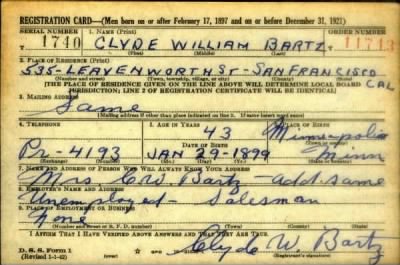 REGISTRATION CARD—(Men born on or after February 17, 1897 and on or before December 31, 1921)
SERIAL NUMBER 1. NAME (Print) ORDER NUMBER
1740 CLYDE WILLIAM BARTZ 11713
(First) (Middle) (Last)
2. PLACE OF RESIDENCE (Print)
535 LEAVENWORTH ST SAN FRANCISCO CAL
(Number and street) (Town, township, village, or city) (County) (State)
[THE PLACE OF RESIDENCE GIVEN ON THE LINE ABOVE WILL DETERMINE LOCAL BOARD
JURISDICTION; LINE 2 OF REGISTRATION CERTIFICATE WILL BE IDENTICAL]
3. MAILING ADDRESS
Same
[Mailing address if other than place indicated on line 2. If same insert word same]
4. TELEPHONE 5. AGE IN YEARS 6. PLACE OF BIRTH
43 Minneapolis
DATE OF BIRTH
Pr-4193 JAN 29-1899 Minn
(Exchange) (Number) (Mo.) (Day) (Yr.)
7. NAME AND ADDRESS OF PERSON WHO WILL ALWAYS KNOW YOUR ADDRESS
Mrs C W Bartz - add same
8. EMPLOYER'S NAME AND ADDRESS
Unemployed - Salesman
9. PLACE OF EMPLOYMENT OR BUSINESS
none
(Number and street or R. F. D. number) (Town) (County) (State)
I AFFIRM THAT I HAVE VERIFIED ABOVE ANSWERS AND THAT THEY ARE TRUE.
D. S. S. Form 1
(Revised 1-1-42)
Clyde W. Bartz